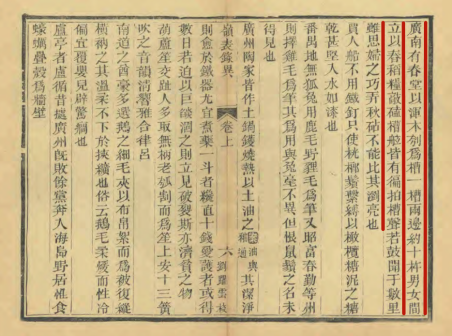 廣南有舂堂以渾木刳爲槽一槽兩邊約十杵男女間
立以舂稻糧敲磕槽舷皆有徧拍槽聲若鼓聞于數里
雖思婦之巧弄秋砧不能比其瀏亮也
賈人船不用鐵釘只使桄榔鬚繫縛以橄欖糖泥之糖
乾甚堅入水如漆也
番禺地無狐兔用鹿毛野狸毛爲筆又昭富春勤等州
則擇雞毛爲筆其爲用與兔毫不異但恨鼠鬚之名未
得見也
廣州陶家皆作土鍋鑊燒熱以土油之其潔淨
則愈於鐵器尤宜煮藥一斗者纔直十錢愛護者或得
數日若迫以巨燄涸之則立見破裂斯亦濟貧之物
嶺表錄異 卷上 六
葫蘆笙交趾人多取無柄老瓠割而爲笙上安十三簧
吹之音韻清響雅合律呂
南道之酋豪多選鵝之細毛夾以布帛絮而爲被復縱
橫衲之其溫柔不下於挾纊也俗云鵝毛柔煖而性冷
偏宜覆嬰兒辟驚癇也
盧亭者盧循昔據廣州既敗餘黨奔入海島野居惟食
蠔蠣壘殼爲牆壁